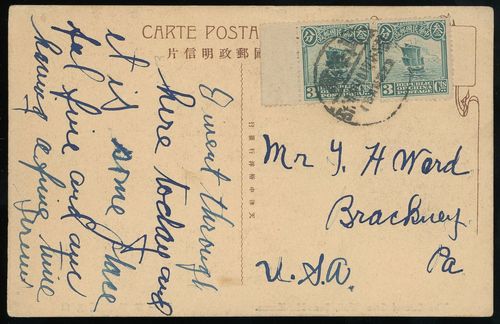 CARTE POSTA
國郵政明信片
3
REPUBLIC
OF CHINA
POSTAGE
3
REPUBLIC
OF CHINA
POSTAGE
Cts
I went through
here today and
it is some place
fal fine and are
having a fine time
Mr Y H Ward
Brackney
Pa
U.S.A.